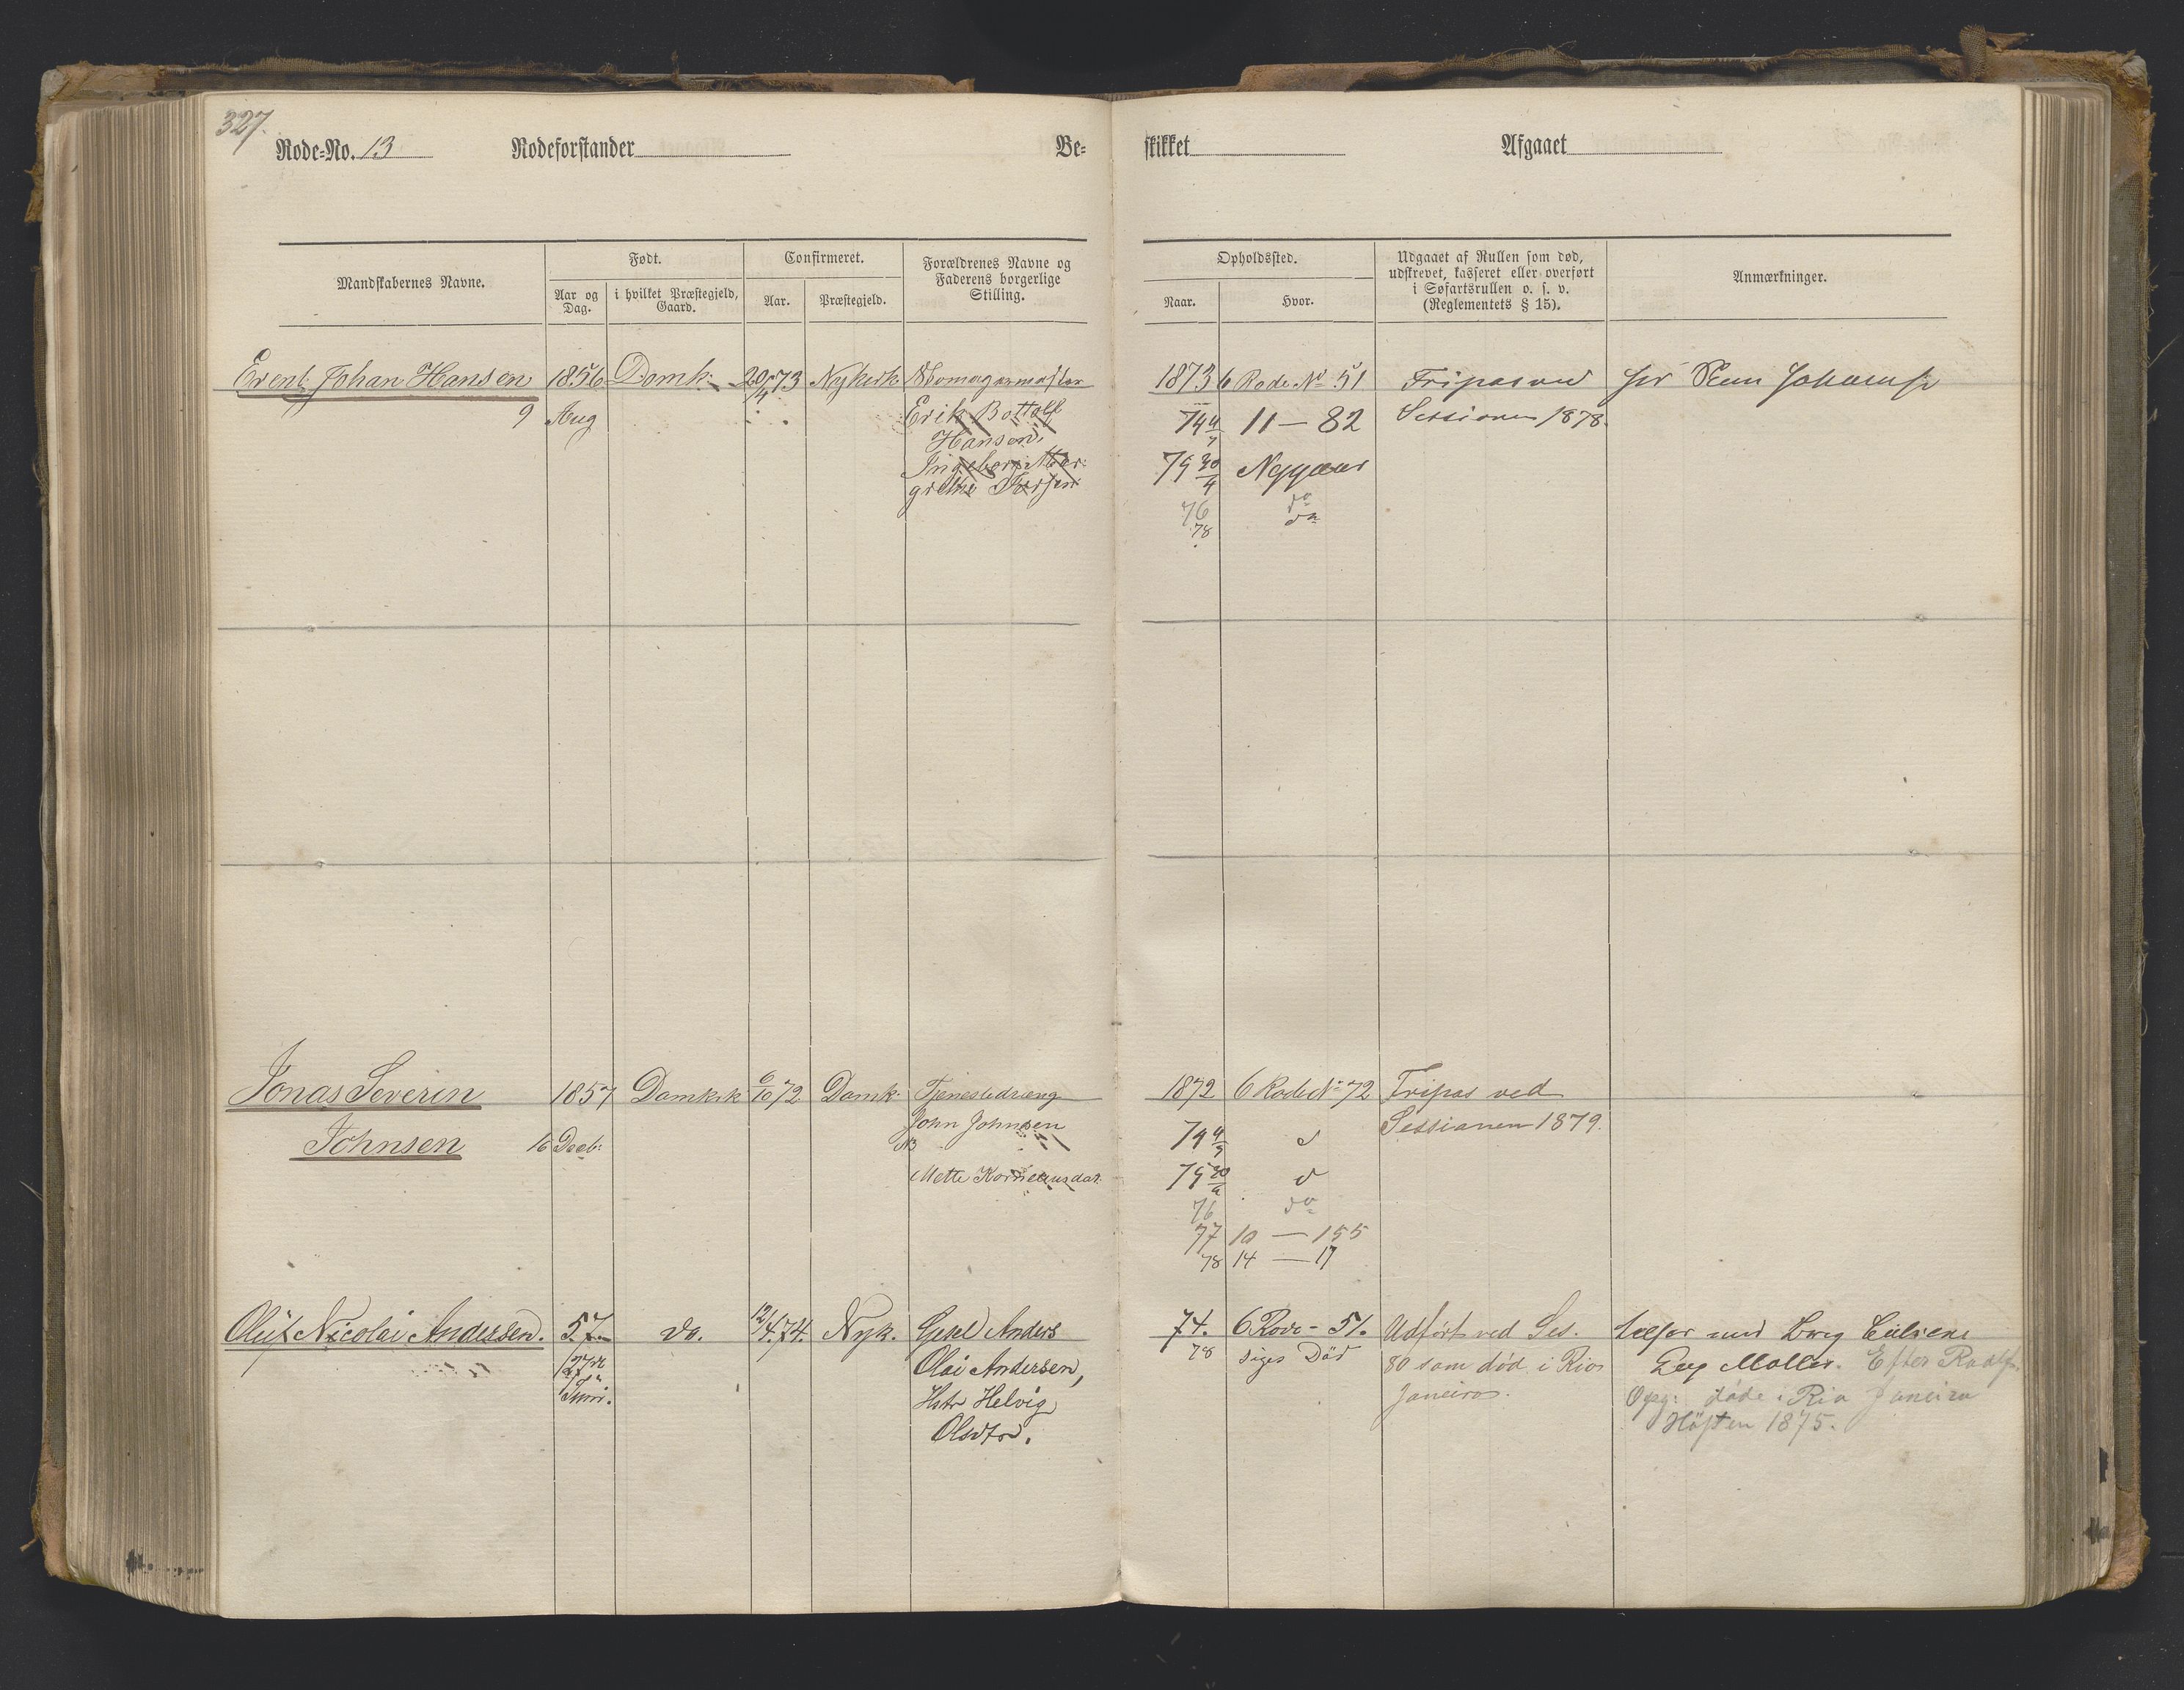 327.
Rode-No. 13 Rodeforstander Be-
skikket Afgaaet
Mandskabernes Navne. Født. Confirmeret. Forældrenes Navne og Faderens borgerlige Stilling.
Aar og Dag. i hvilket Præstegjeld, Gaard. Aar. Præstegjeld.
Opholdssted. Udgaaet af Rullen som død, udskrevet, kasseret eller overført i Søfartsrullen o. s. v. (Reglementets § 15). Anmærkninger.
Naar. Hvor.
Erent Johan Hansen 1856 Domk: 20/4 73 Nykirk Skomagermester
9 Aug Erik Bottolf
Hansen
Ingeborg Mar:
grethe Iversen
1873 6 Rode No 51 Fripas ved
74 4/7 11 — 82 Sessionen 1878.
75 30/4 Nygaard
76 do
78 do
Jonas Severin 1857 Domkirk 6/10 72 Domk: Tjenestedræng
Johnsen 16 Decb: John Johnsen
Mette
1872 6 Rode No 72 Fripas ved
74 4/7 d Sessionen 1879.
75 30/4 d
76 do
77 10 — 155
78 14 — 17
Oluf Nicolai Andersen. 57 do. 12/4 74. Nyk. Gesel Anders
27de Juni. Olai Andersen,
Hstr Helvig
Olsdtr.
74. 6 Rode - 51. Udført ved Ses.
78 siges Död 80 som död i Rio
Janeiro.
med Brig
Møller. Efter
Opg: döde i Rio Janeiro
Hösten 1875.